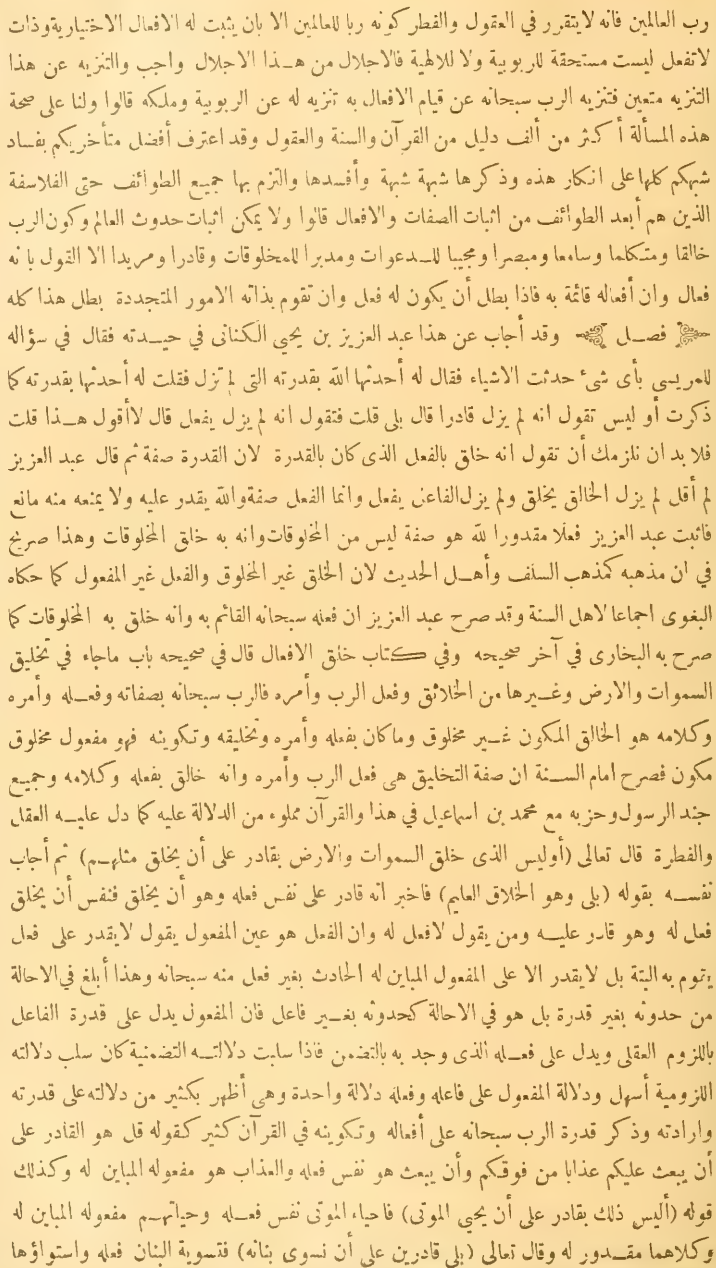 رب العالمين فانه لايتقرر في العقول والفطر كونه ربا للعالمين الا بان يثبت له الافعال الاختيارية وذات
لا تفعل ليست مستحقة للربوبية ولا للالهية فالاجلال من هذا الاجلال واجب والتنزيه عن هذا
التنزيه متعين فتنزيه الرب سبحانه عن قيام الافعال به تنزيه له عن الربوبية وملكه قالوا ولنا على صحة
هذه المسألة أكثر من ألف دليل من القرآن والسنة والعقول وقد اعترف أفضل متأخريكم بفساد
شبهكم كلها على انكار هذه وذكرها شبهة شبهة وأفسدها والتزم بها جميع الطوائف حتى الفلاسفة
الذين هم أبعد الطوائف من اثبات الصفات والافعال قالوا ولا يمكن اثبات حدوث العالم وكون الرب
خالقا ومتكلما وسامعا ومبصرا ومجيبا للدعوات ومدبرا للمخلوقات وقادرا ومريدا الا القول بانه
فعال وان أفعاله قائمة به فاذا بطل أن يكون له فعل وان تقوم بذاته الامور المتجددة بطل هذا كله
فصل وقد أجاب عن هذا عبد العزيز بن يحيى الكنانى في حيدته فقال في سؤاله
للمريسي بأى شئ حدثت الاشياء فقال له أحدثها الله بقدرته التى لم تزل فقلت له أحدثها بقدرته كما
ذكرت أو ليس تقول انه لم يزل قادرا قال بلى قلت فتقول انه لم يزل يفعل قال لا أقول هذا قلت
فلا بد ان نلزمك أن تقول انه خلق بالفعل الذى كان بالقدرة لان القدرة صفة ثم قال عبد العزيز
لم أقل لم يزل الخالق يخلق ولم يزل الفاعل يفعل وانما الفعل صفة والله يقدر عليه ولا يمنعه منه مانع
فاثبت عبد العزيز فعلا مقدورا لله هو صفة ليس من المخلوقات وانه به خلق المخلوقات وهذا صريح
في ان مذهبه كمذهب السلف وأهل الحديث لان الخلق غير المخلوق والفعل غير المفعول كما حكاه
البغوى اجماعا لاهل السنة وقد صرح عبد العزيز ان فعله سبحانه القائم به وانه خلق به المخلوقات كما
صرح به البخارى في آخر صحيحه وفي كتاب خلق الافعال قال في صحيحه باب ماجاء في تخليق
السموات والارض وغيرها من الخلائق وفعل الرب وأمره فالرب سبحانه بصفاته وفعله وأمره
وكلامه هو الخالق المكون غير مخلوق وماكان بفعله وأمره وتخليقه وتكوينه فهو مفعول مخلوق
مكون فصرح امام السنة ان صفة التخليق هى فعل الرب وأمره وانه خالق بفعله وكلامه وجميع
جند الرسول وحزبه مع محمد بن اسماعيل في هذا والقرآن مملوء من الدلالة عليه كما دل عليه العقل
والفطرة قال تعالى (أوليس الذى خلق السموات والارض بقادر على أن يخلق مثلهم) ثم أجاب
نفسه بقوله (بلى وهو الخلاق العليم) فاخبر انه قادر على نفس فعله وهو أن يخلق فنفس أن يخلق
فعل له وهو قادر عليه ومن يقول لافعل له وان الفعل هو عين المفعول يقول لايقدر على فعل
يقوم به البتة بل لايقدر الا على المفعول المباين له الحادث بغير فعل منه سبحانه وهذا أبلغ في الاحالة
من حدوثه بغير قدرة بل هو في الاحالة كحدوثه بغير فاعل فان المفعول يدل على قدرة الفاعل
باللزوم العقلى ويدل على فعله الذى وجد به بالتضمن فاذا سلبت دلالته التضمنية كان سلب دلالته
اللزومية أسهل ودلالة المفعول على فاعله وفعله دلالة واحدة وهى أظهر بكثير من دلالته على قدرته
وارادته وذكر قدرة الرب سبحانه على أفعاله وتكوينه في القرآن كثير كقوله قل هو القادر على
أن يبعث عليكم عذابا من فوقكم وأن يبعث هو نفس فعله والعذاب هو مفعوله المباين له وكذلك
قوله (أليس ذلك بقادر على أن يحيى الموتى) فاحياء الموتى نفس فعله وحياتهم مفعوله المباين له
وكلاهما مقدور له وقال تعالى (بلى قادرين على أن نسوى بنانه) فتسوية البنان فعله واستواؤها